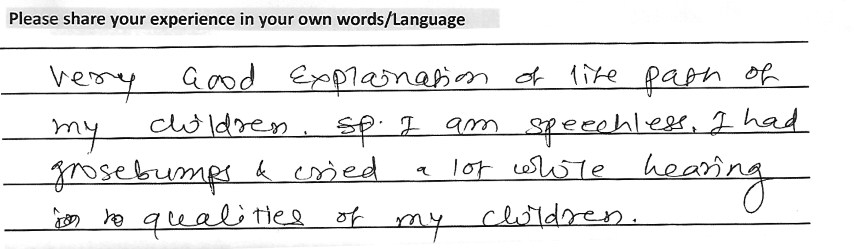 Please share your experience in your own words/Language
Very Good Explaination of life path of
my children. sp. I am speechless. I had
goosebumps & cried a lot while hearing
qualities of my children.